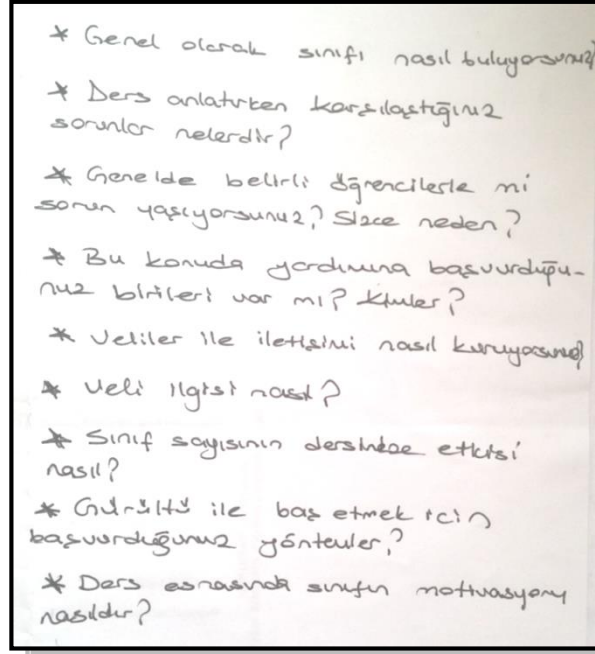 * Genel olarak sınıfı nasıl buluyorsunuz?
* Ders anlatırken karşılaştığınız
sorunlar nelerdir?
* Genelde belirli öğrencilerle mi
sorun yaşıyorsunuz? Sizce neden?
* Bu konuda yardımına başvurduğu-
nuz birileri var mı? Kimler?
* Veliler ile iletişimi nasıl kuruyorsunuz?
* Veli ilgisi nasıl?
* Sınıf sayısının dersinize etkisi
nasıl?
* Gürültü ile baş etmek için
başvurduğunuz yöntemler?
* Ders esnasında sınıfın motivasyonu
nasıldır?